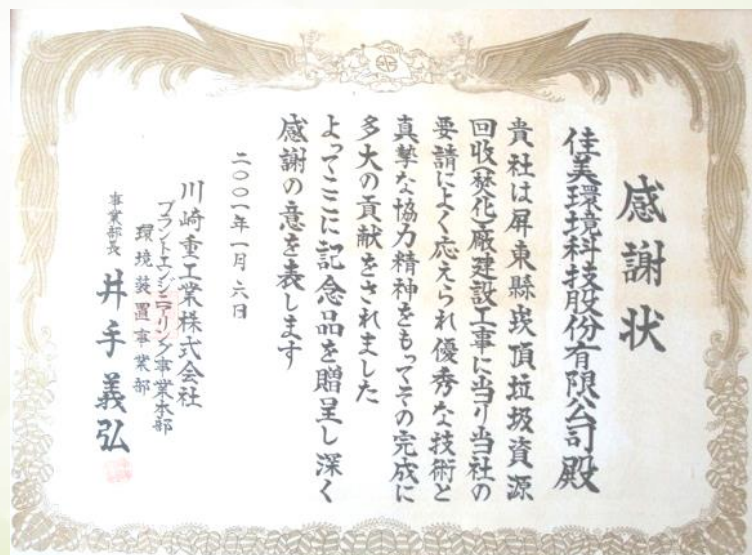 感謝状
佳美環境科技股份有限公司殿
貴社は屏東縣崁頂垃圾資源
回收(焚化)廠建設工事に当り当社の
要請によく応えられ優秀な技術と
真摯な協力精神をもってその完成に
多大の貢献をされました
よってここに記念品を贈呈し深く
感謝の意を表します
二〇〇一年一月六日
川崎重工業株式会社
プラントエンジニアリング事業本部
環境装置事業部
事業部長 井手義弘